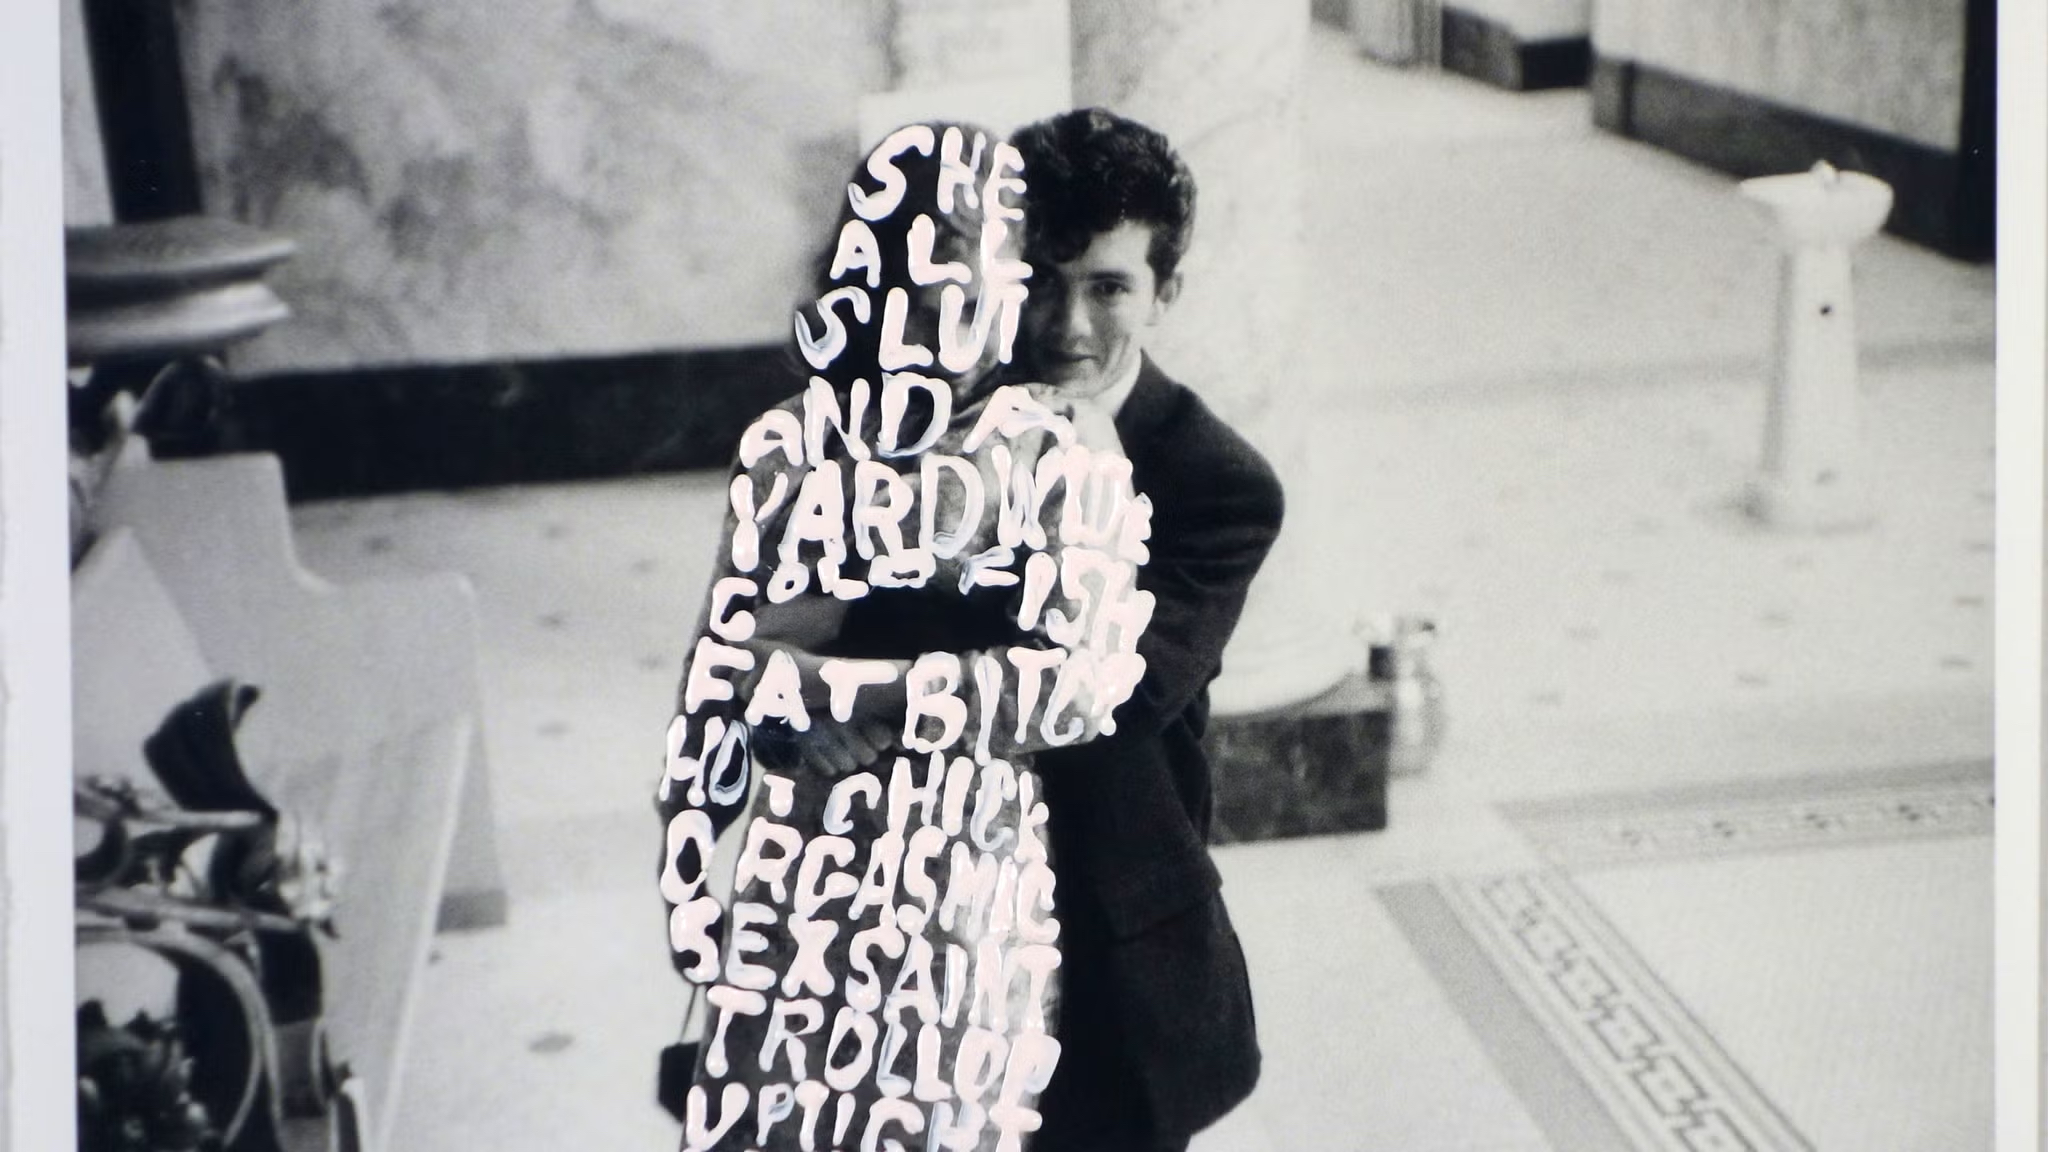 SHE
ALL
SLUT
AND A
YARD WIDE
COLD FISH
FAT BITCH
HOT CHICK
ORGASMIC
SEX SAINT
TROLLOP
UPTIGHT